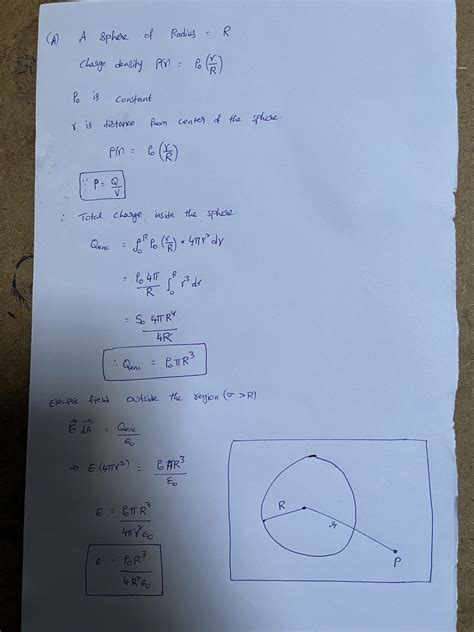 (A) A Sphere of Radius = R
Charge density ρ(r) = ρ₀ (r/R)
ρ₀ is constant
r is distance from center of the sphere.
ρ(r) = ρ₀ (r/R)
∵ ρ = Q/V
∴ Total Charge inside the sphere
Qenc = ∫₀ᴿ ρ₀ (r/R) × 4πr² dr
= ρ₀ 4π/R ∫₀ᴿ r³ dr
= ρ₀ 4πR⁴/4R
∴ Qenc = ρ₀ π R³
Electric field outside the region (r > R)
E⃗ dA⃗ = Qenc/ε₀
⇒ E (4πr²) = ρ₀πR³/ε₀
E = ρ₀πR³/4πr²ε₀
E = ρ₀R³/4r²ε₀
R
r
P